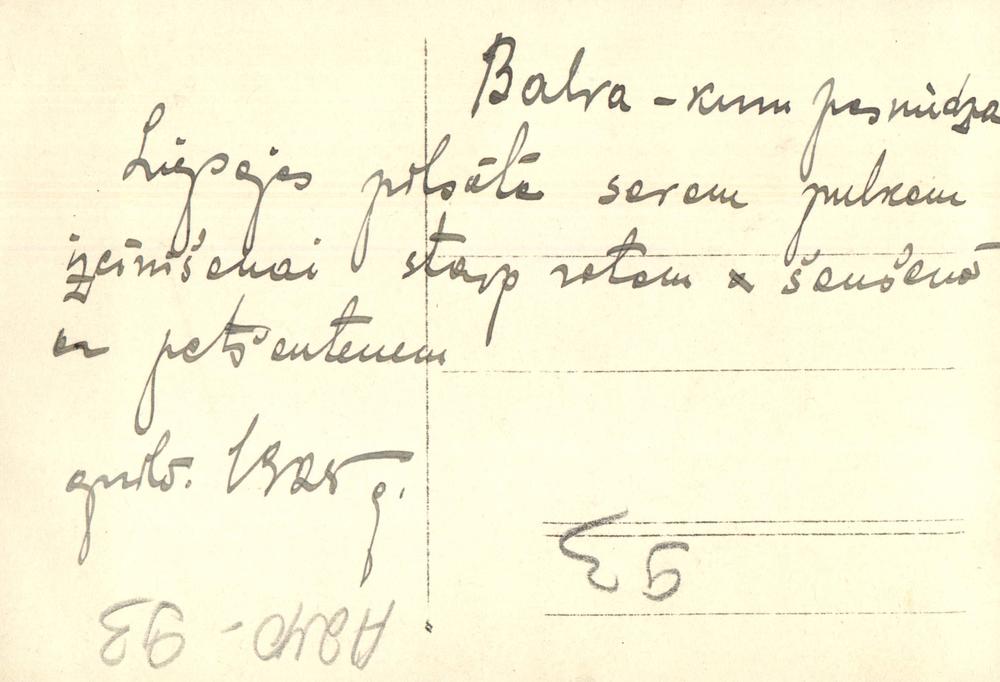 Balva - kuru pasniedza
Liepajas pilsēta savam pulkam
izcīnīšanai starp rotam x šaušanā
ar patšautenem
aprilī. 1925 g.
A240-93